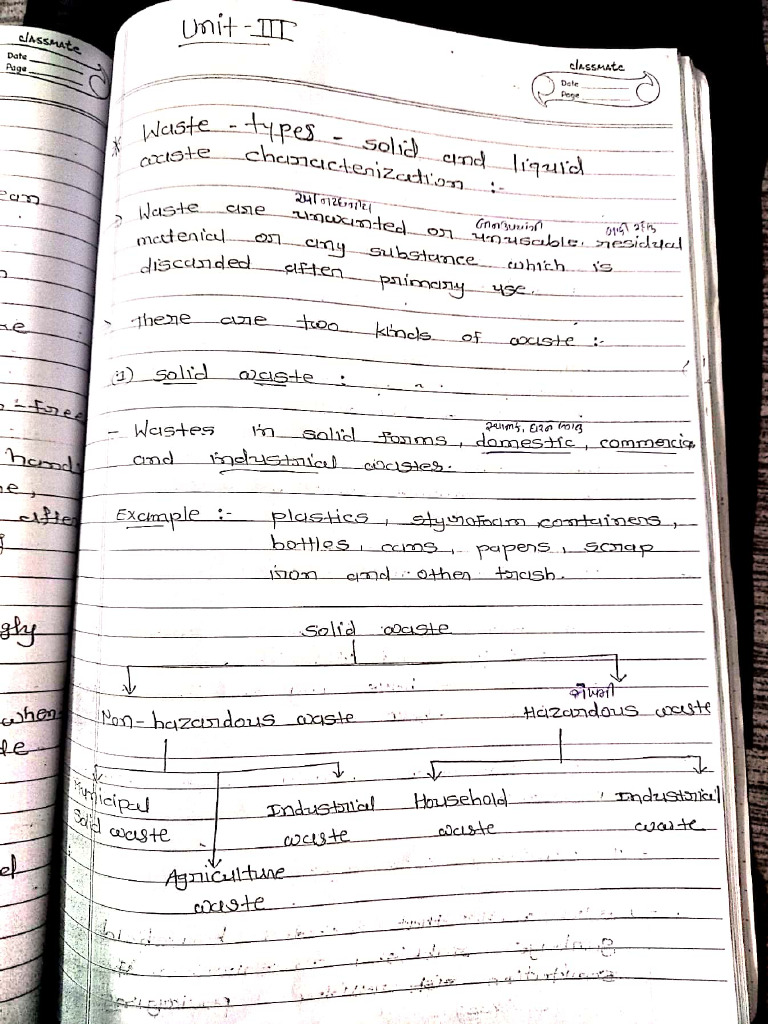 Unit - III
classmate
Date
Page
classmate
Date
Page
* Waste - types - solid and liquid
waste characterization :-
> Waste are unwanted or unusable, residual
material or any substance which is
discarded after primary use.
> There are two kinds of waste :-
(1) solid waste :
- Wastes in solid forms, domestic, commercia
and industrial wastes.
Example :- plastics, styrofoam containers,
bottles, cans, papers, scrap
iron and other trash.
Solid waste
Non-hazardous waste
Hazardous waste
Municipal Industrial Household Industrial
Solid waste waste waste waste
Agriculture
waste
ean
-free
hand
after
gly
when